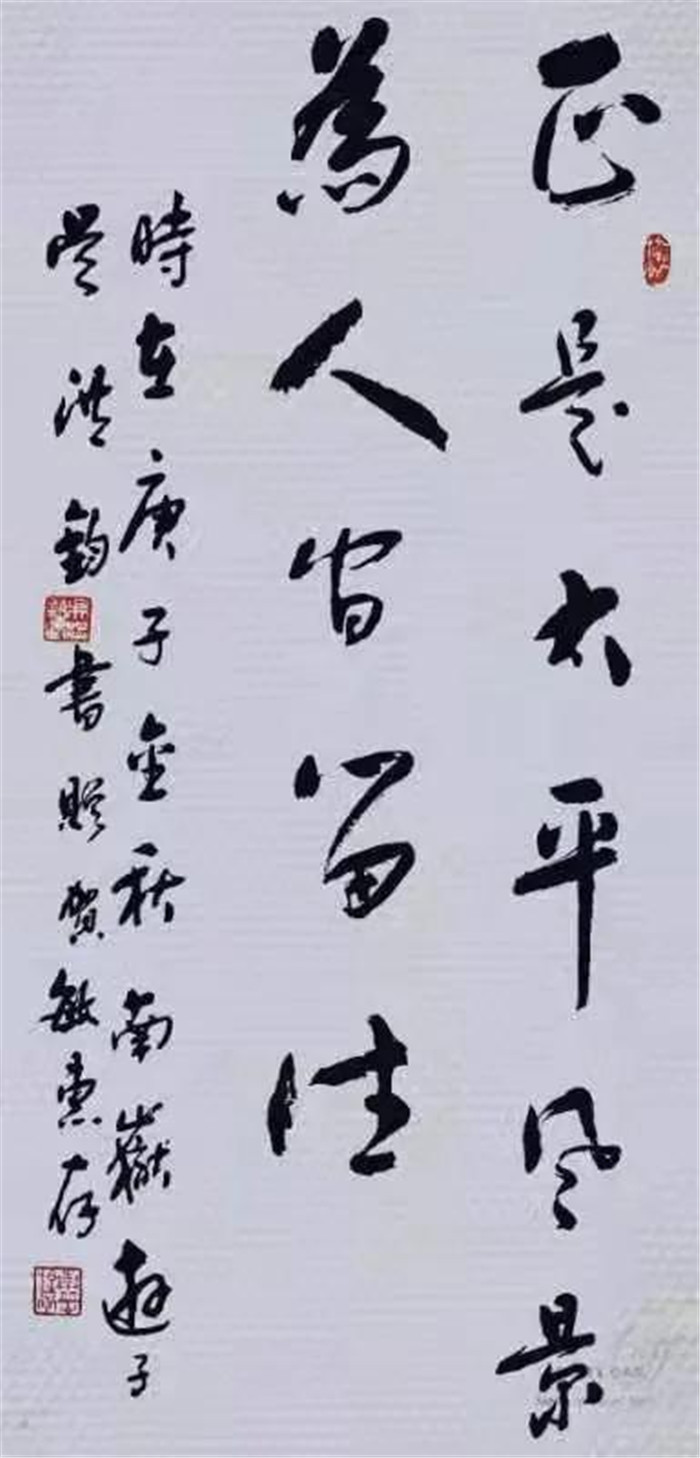 正是太平風景
為人間留住
時在庚子金秋南嶽遊子
吴洪鈞書贈賀敏惠存